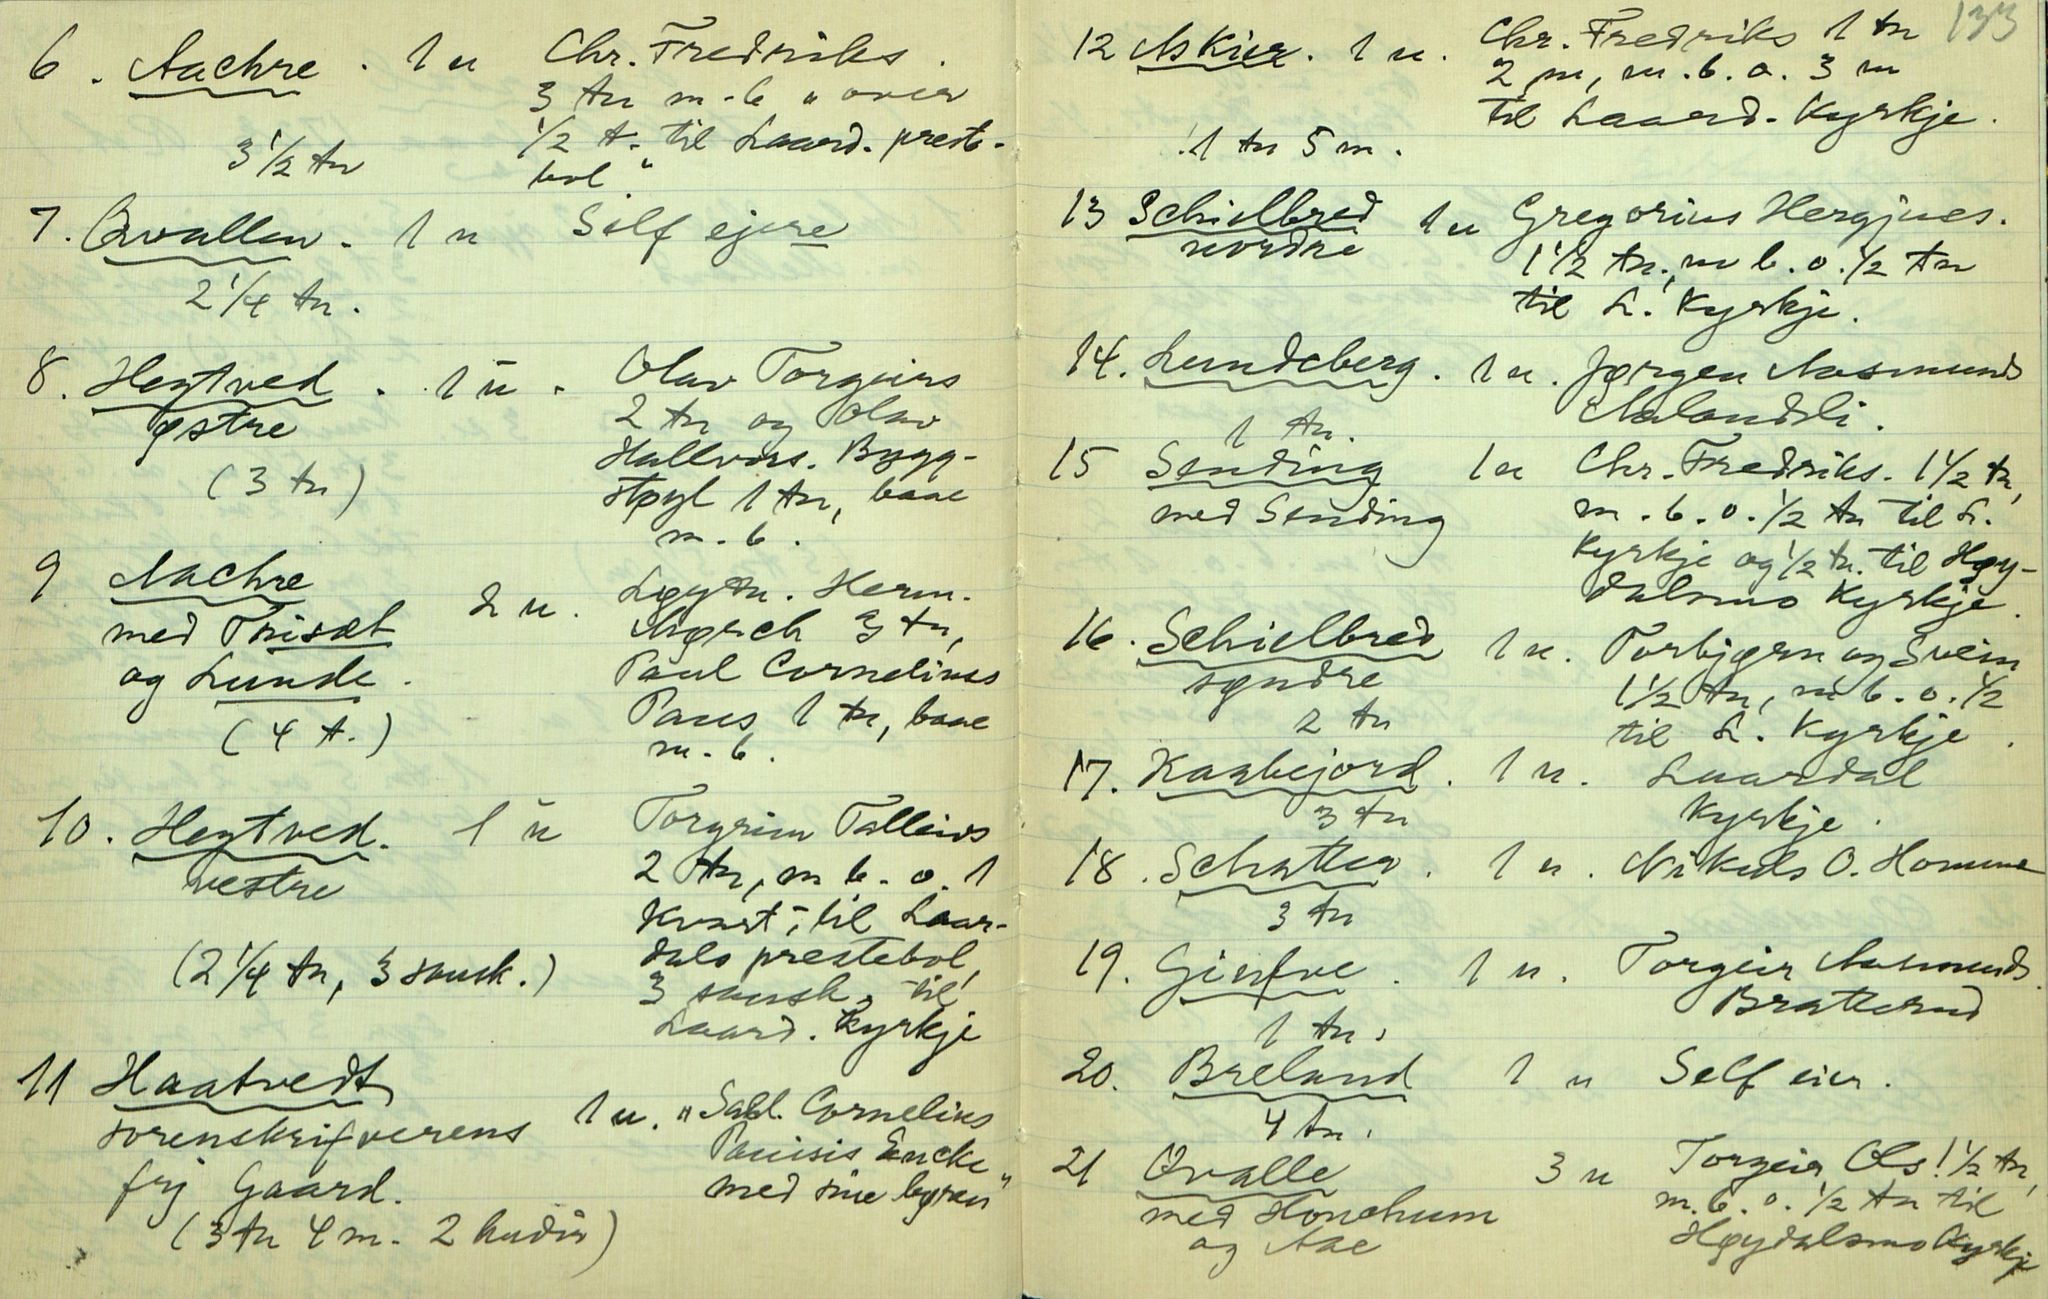 6. Aachre. 1 u Chr. Fredriks.
3 tn m. b „over
½ t. til Laard. preste-
3 ½ tn
bol"
7. Qvallen. 1 u Self ejere
2 ¼ tn.
8. Hegtved. 1 u. Olav Torgeirs
østre 2 tn og Olav
Hallvors. Bygg-
(3 tn) støyl 1 tn, baae
m. b.
9 Aachre 2 u. Løytn. Herm.
med Trisæt 3 tn,
og Lunde. Paul Cornelius
(4 t.) Paus 1 tn, baae
m. b.
10. Hegtved. 1 u Torgrim Talleivs
vestre 2 tn, m b. o. 1
kvart, til Laar-
(2 ¼ tn, 3 sausk.) dals prestebol,
3 sausk. til
Laard. Kyrkje
11 Haatvedt
sorenskrifverens 1 u. „Sahl. Cornelius
frj Gaard. Pausis Encke
med sine børen"
(3 tn 4 m. 2 hudir)
133
12 Askier. 1 u. Chr. Fredriks 1 tn
2 m, m. b. o. 3 m
til Laard. Kyrkje.
1 tn 5 m.
13 Schielbred 1 u Gregorius Hergjues.
nordre 1 ½ tn, m b. o. ½ tn
til L. Kyrkje.
14. Lundeberg. 1 u. Jørgen Aasmunds
1 tn. Aalandsli.
15 Sending 1 u Chr. Fredriks. 1 ½ tn,
med Sending m. b. o. ½ tn til L.
Kyrkje og ½ tn. til Høy-
dalsmo Kyrkje.
16. Schielbred 1 u. Torbjørn og Svein
søndre 1 ½ tn, m b. o. ½
2 tn til L. Kyrkje.
17. Kaabejord. 1 u. Laardal
3 tn Kyrkje.
18. Schatter. 1 u. Nikuls O. Homme
3 tn
19. 1 u. Torgeir Aasmunds.
Bratterud
1 tn.
20. Breland 1 u Self eier.
4 tn.
21 Qvalle 3 u Torgeir Ols! ½ tn,
med Honchum m. b. o. ½ tn til
og Aae Høydalsmo Kyrkje